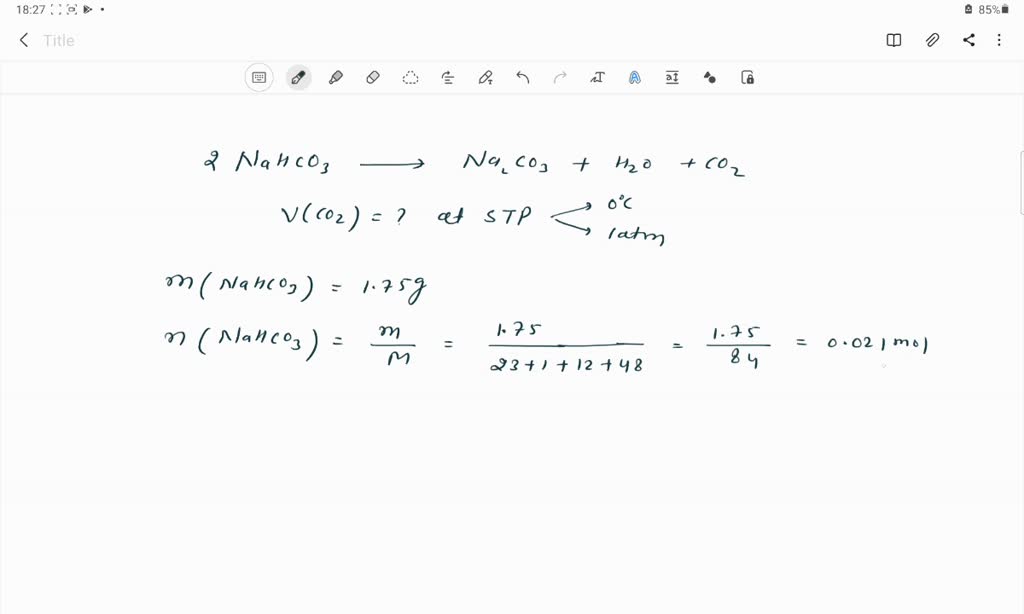 18:27 85%
Title
2 NaHCO3 → Na2CO3 + H2O + CO2
V(CO2) = ? at STP 0°C
1atm
m(NaHCO3) = 1.75g
n(NaHCO3) = m/M = 1.75/23+1+12+48 = 1.75/84 = 0.021mol